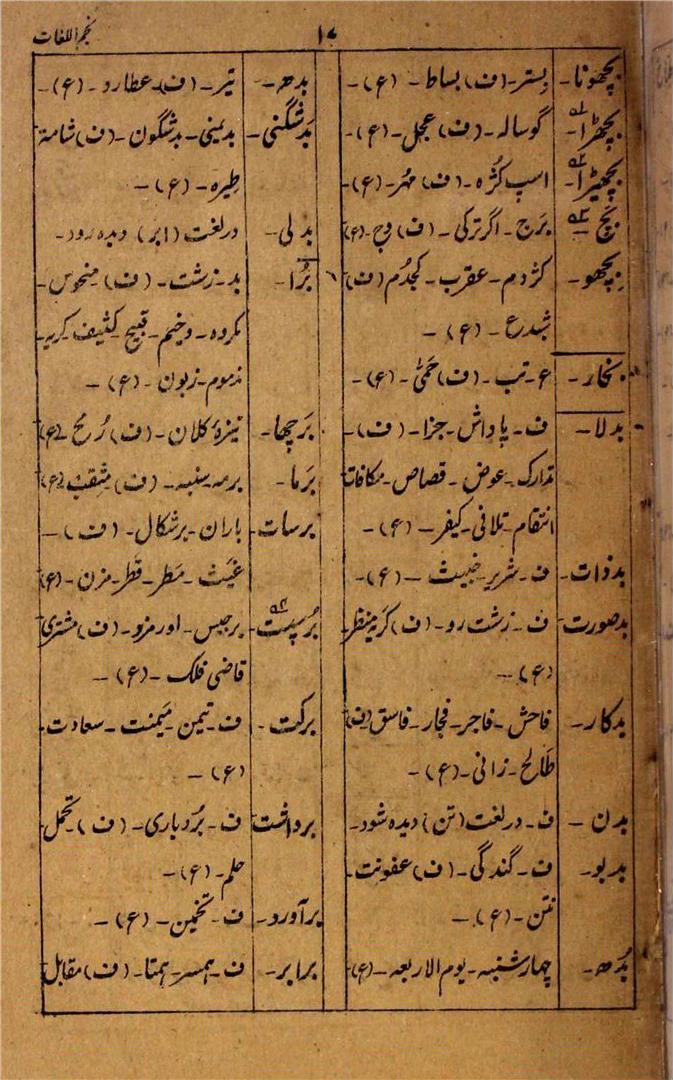 نجم اللغات
۱۷
بچھونا۔ بستر۔ (ف) بساط۔ (ع)۔
بچھڑا۔ گوسالہ۔ (ف) عجل۔ (ع)۔
بچھیڑا۔ اسپ کُرّہ۔ (ف) مُہر۔ (ع)۔
بَچ۔ بَرَج۔ اگر ترکی۔ (ف) وج۔ (ع)
بِچھو۔ کژدم۔ عقرب۔ کجدُم (ف)
شبدع۔ (ع)۔
بخار۔ ع۔ تب۔ (ف) حَمیّٰ۔ (ع)۔
بدلا۔ ف۔ پاداش۔ جزا۔ (ف)۔
تدارک۔ عوض۔ قصاص۔ مکافات
انتقام۔ تلافی۔ کیفر۔ (ع)۔
بدذات۔ ف۔ شریر۔ خبیث۔ (ع)۔
بدصورت۔ ف۔ زشت رو۔ (ف) کریہ منظر
(ع)۔
بدکار۔ فاحش۔ فاجر۔ فجار۔ فاسق (ف)
طالح۔ زانی۔ (ع)۔
بدن۔ ف۔ درلغت (تن) دیدہ شود۔
بدبو۔ ف۔ گندگی۔ (ف) عفونت۔
نتن۔ (ع)۔
بُدھ۔ چہارشنبہ۔ یوم الاربعہ۔ (ع)
بدھ۔ تیر۔ (ف) عطارد۔ (ع)۔
بَدشگنی۔ بدیمنی۔ بدشگون۔ (ف) شامۃ
طِیرہ۔ (ع)۔
بدلی۔ درلغت (ابر) دیدہ رود۔
بُرا۔ بد۔ زشت۔ (ف) منحوس۔
مکروہ۔ وخیم۔ قبیح۔ کثیف کریہ۔
مذموم۔ زبون۔ (ع)۔
بَرچھا۔ نیزۂ کلان۔ (ف) رُمح۔ (ع)
بَرما۔ برمہ۔ سنبہ۔ (ف) مِثقب (ع)
برسات۔ باران۔ برشکال۔ (ف)۔
غَیث۔ مَطر۔ قَطر۔ مزن۔ (ع)
بَرسپت۔ برجیس۔ اورمزد۔ (ف) مشتری
قاضی فلک۔ (ع)۔
برکت۔ ف۔ تیمن۔ مَیمنت۔ سعادت۔
(ع)۔
برداشت۔ ف۔ بُردباری۔ (ف) تحمل۔
حلم۔ (ع)۔
برآورد۔ ف۔ تخمین۔ (ع)۔
برابر۔ ف۔ ہمسر۔ ہمتا۔ (ف) مقابل